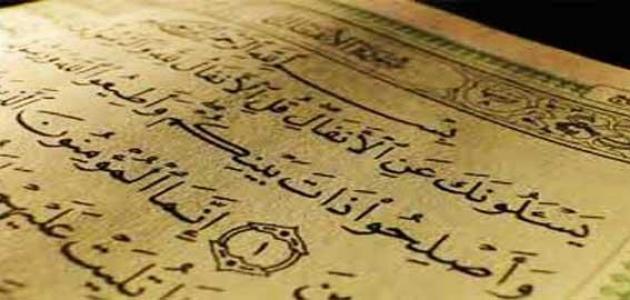 سُورَةُ الأَنْفَالِ
بِسْمِ ٱللَّهِ ٱلرَّحْمَٰنِ ٱلرَّحِيمِ
يَسْـَٔلُونَكَ عَنِ ٱلْأَنفَالِ قُلِ ٱلْأَنفَالُ لِلَّهِ وَٱلرَّسُولِ
وَأَصْلِحُوا۟ ذَاتَ بَيْنِكُمْ وَأَطِيعُوا۟ ٱللَّهَ وَرَسُو
ينَ ١ إِنَّمَا ٱلْمُؤْمِنُونَ ٱلَّذِ
تُلِيَتْ عَلَيْهِ